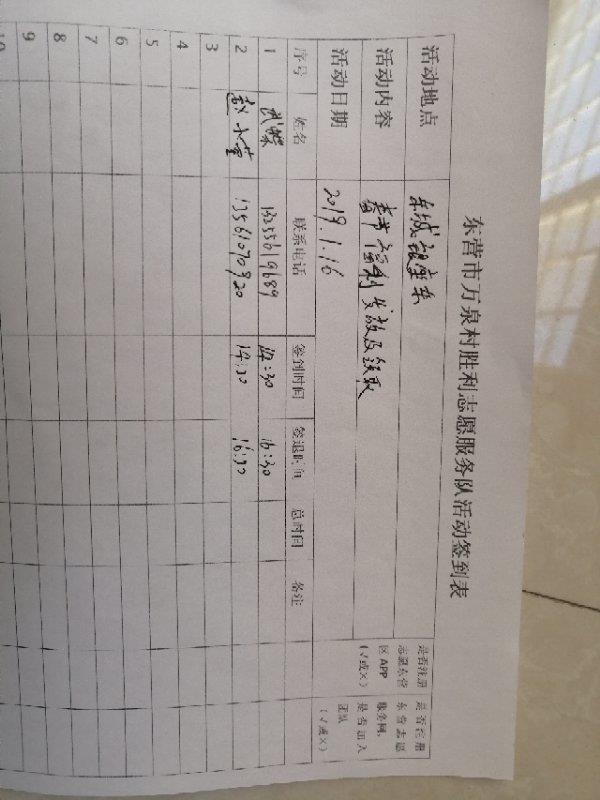 东营市万泉村胜利志愿服务队活动签到表
活动地点 东城银座东
活动内容 春节福利发放及领取
活动日期 2019.1.16
是否注册志愿东营区APP（√或×）
是否注册东营志愿服务网，是否加入团队（√或×）
序号 姓名 联系电话 签到时间 签退时间 总时间 备注
1 13255619689 14:30 16:30
2 赵 13561070920 14:30 16:30
3
4
5
6
7
8
9
10